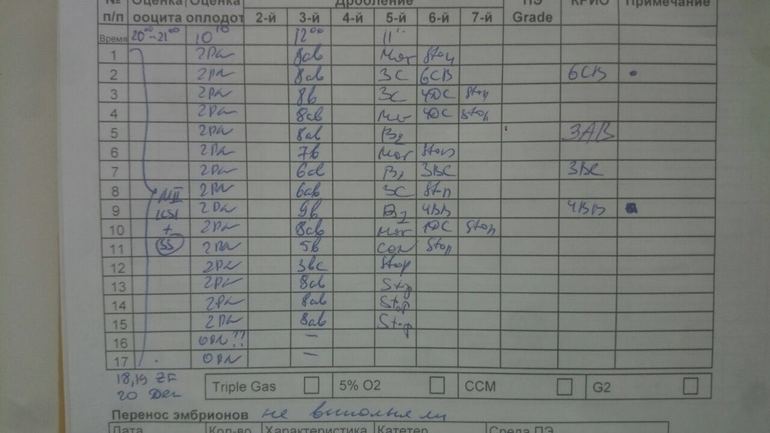 № Оценка Оценка Дробление ПЭ КРИО Примечание
п/п ооцита оплодот 2-й 3-й 4-й 5-й 6-й 7-й Grade
Время 20⁰⁰-21⁰⁰ 10¹⁰ 12⁰⁰ 11
1 2PN 8ab Mor Stop
2 2PN 8ab 3C 6CB 6CB
3 2PN 8b 3C 4DC Stop
4 2PN 8ab Mor 4DC Stop
5 2PN 8ab B2 3AB
6 2PN 7b Mor Stop
7 2PN 6ab B1 3BC 3BC
8 MII 2PN 6ab 3C Stop
9 ICSI 2PN 9b B2 4BB 4BB
10 + 2PN 8ab Mor Stop
11 SS 2PN 5b Stop
12 2PN 3bc Stop
13 2PN 8ab Stop
14 2PN 8ab Stop
15 2PN 8ab Stop
16 0PN?? —
17 0PN —
18,19 ZF
20 Deg
Triple Gas 5% O2 CCM G2
Перенос эмбрионов не выполняли
Дата Кол-во Характеристика Катетер Среда ПЭ